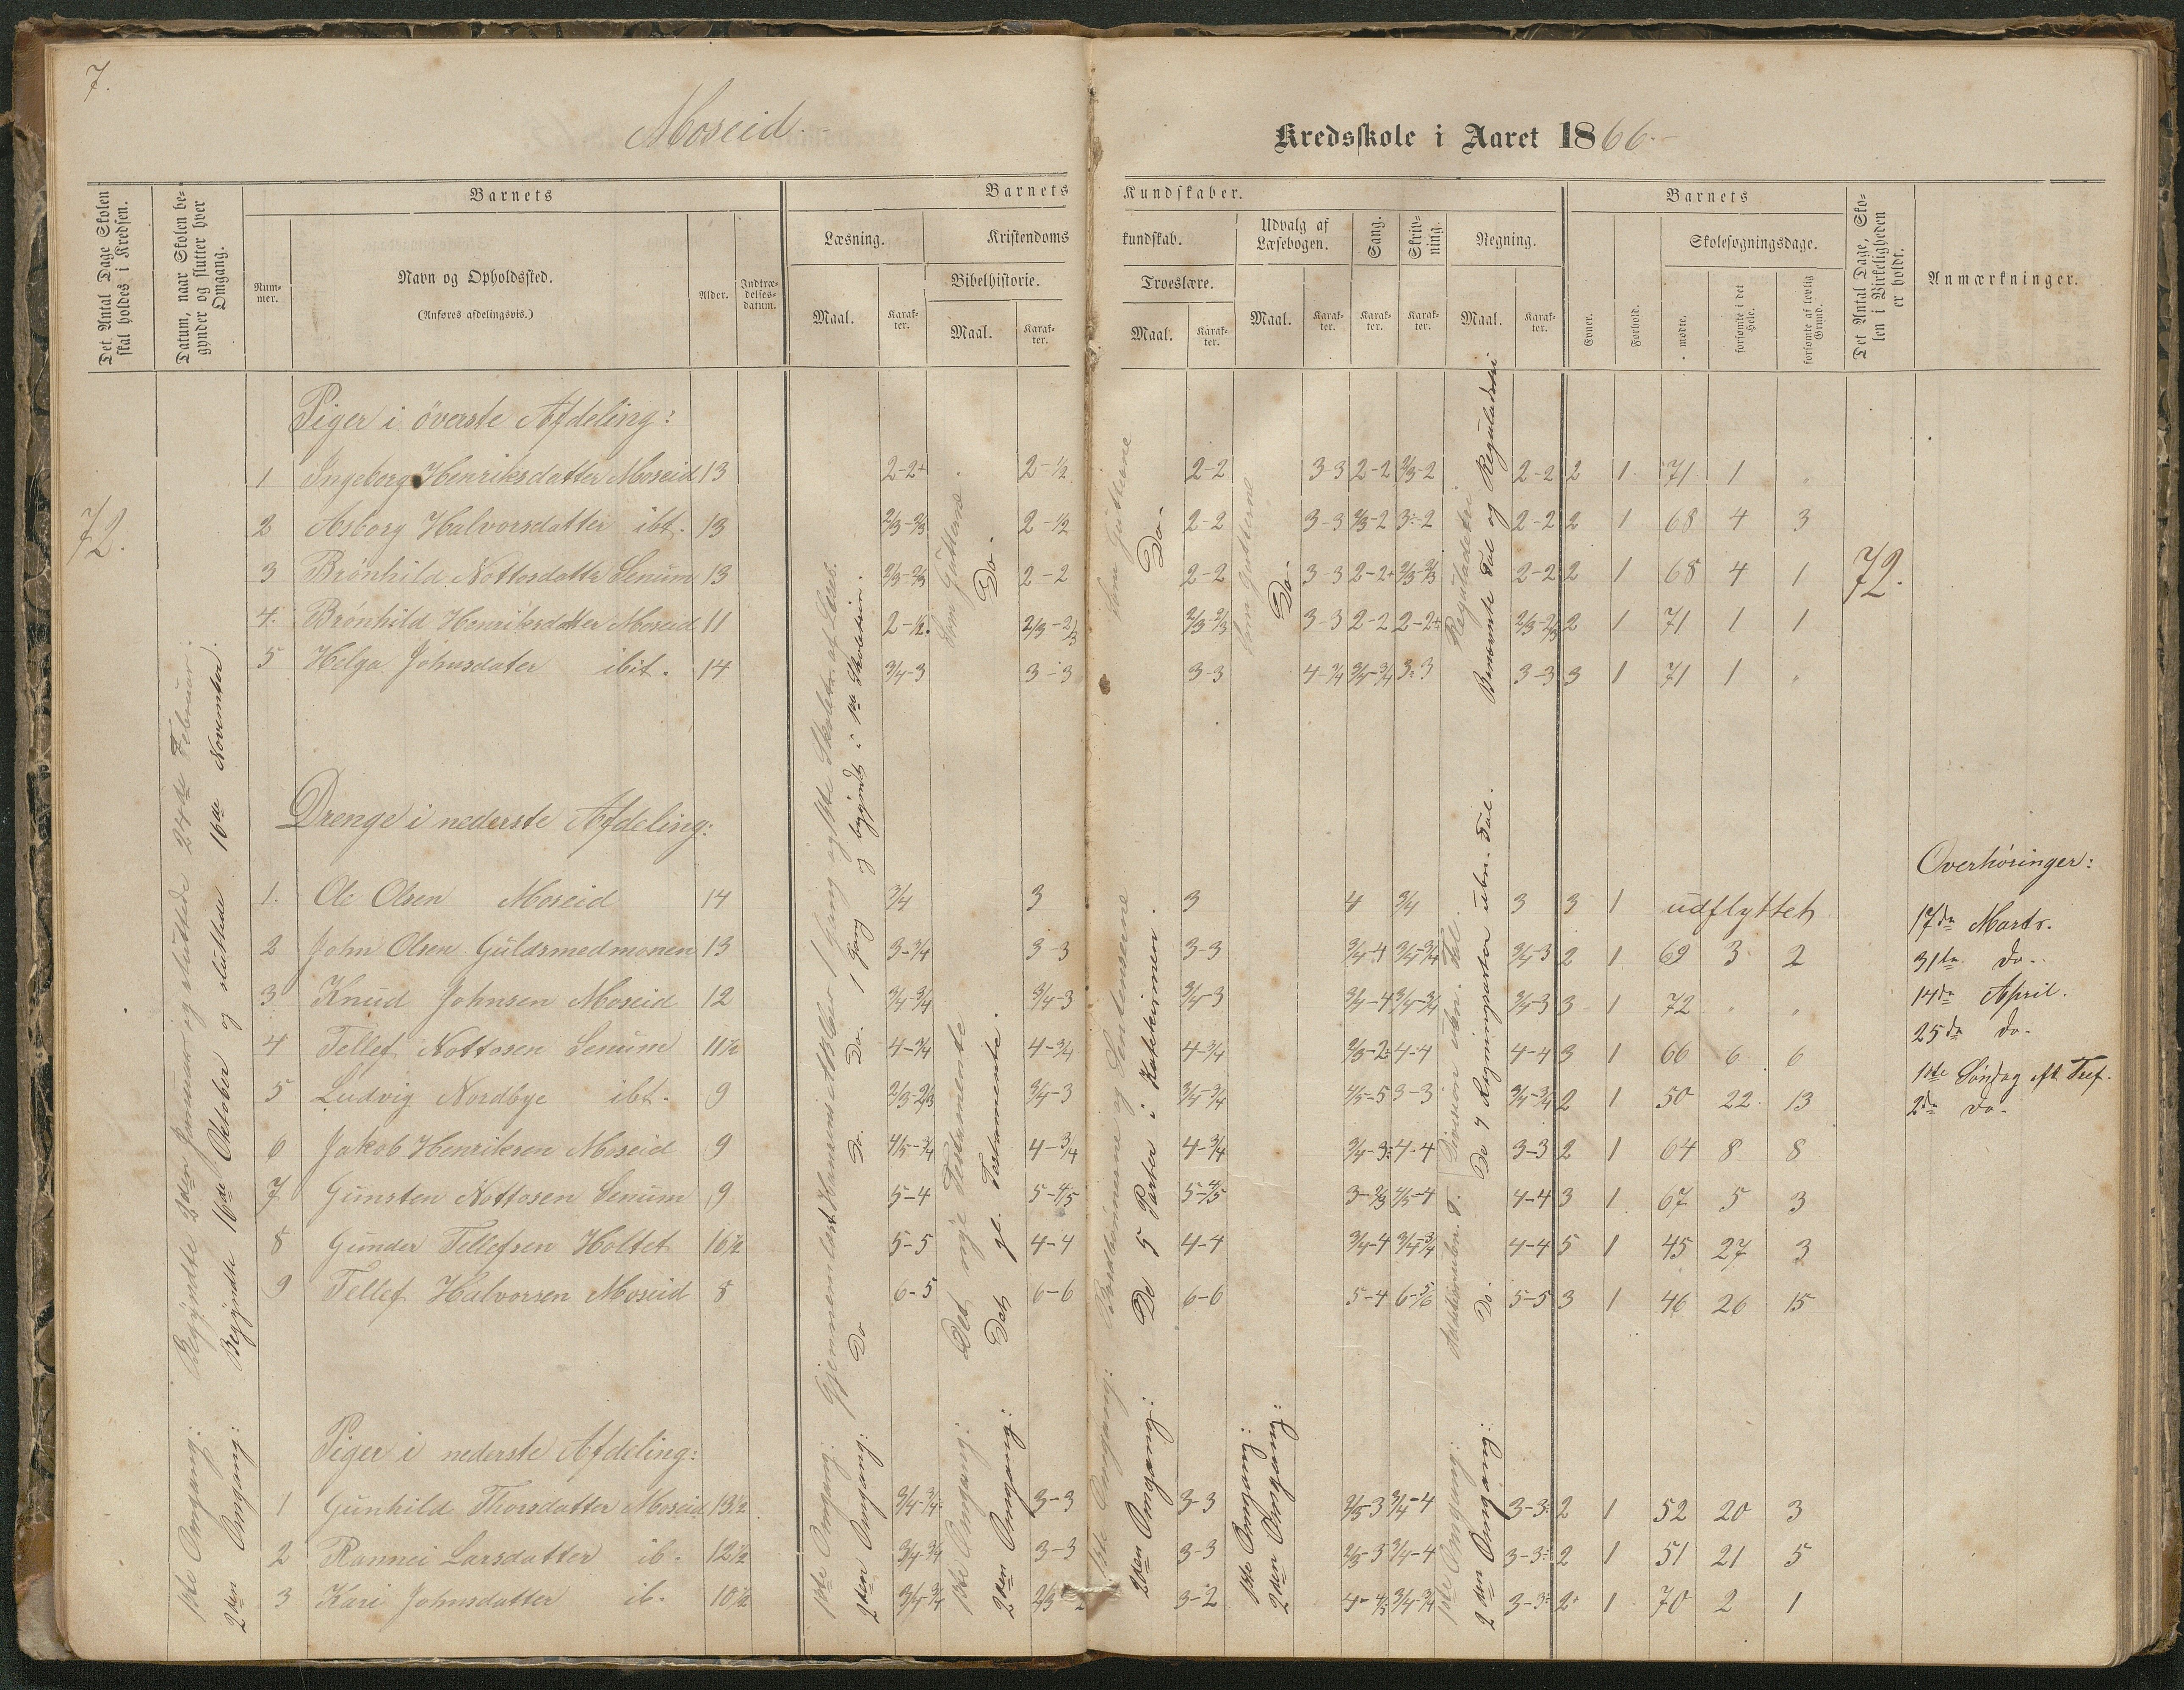 7.
Moseid.
Kredsskole i Aaret 1866.
Det Antal Dage Skolen skal holdes i Kredsen.
Datum, naar Skolen begynder og slutter hver Omgang.
Barnets
Nummer.
Navn og Opholdssted.
(Anføres afdelingsvis.)
Alder.
Indtrædelsesdatum.
Barnets Kundskaber.
Læsning.
Maal.
Karakter.
Kristendomskundskab.
Bibelhistorie.
Maal.
Karakter.
Troeslære.
Maal.
Karakter.
Udvalg af Læsebogen.
Maal.
Karakter.
Sang.
Karakter.
Skrivning.
Karakter.
Regning.
Maal.
Karakter.
Barnets
Evner.
Forhold.
Skolesøgningsdage.
mødte.
forsømte i det Hele.
forsømte af lovlig Grund.
Det Antal Dage, Skolen i Virkeligheden er holdt.
Anmærkninger.
Piger i överste Afdeling:
1 Ingeborg Henriksdatter Moseid 13 2-2+ 2-1/2 2-2 3-3 2-2 2/3-2 2-2 2 1 71 1
2 Asborg Halvorsdatter ibt. 13 2/3-2/3 2-1/2 2-2 3-3 2/3-2 3-2 2-2 2 1 68 4 3
3 Brönhild Nottosdatter Senum 13 2/3-2/3 2-2 2-2 3-3 2-2+ 2/3-2/3 2-2 2 1 68 4 1
4. Brönhild Henriksdatter Moseid 11 2-1/2 2/3-2/3 2/3-2/3 3-3 2-2 2-2+ 2/3-2/3 2 1 71 1 1
5 Helga Johnsdater ibid. 14 3/4-3 3-3 3-3 4-3/4 3/4-3/4 3-3 3-3 3 1 71 1
72.
72.
Drenge i nederste Afdeling:
1. Ole Olsen Moseid 14 3/4 3 3 4 3/4 3 3 1 udflyttet
2 John Olsen Guldsmedmonen 13 3-3/4 3-3 3-3 3/4-4 3/4-3/4 3/4-3 2 1 69 3 2
3 Knud Johnsen Moseid 12 3/4-3/4 3/4-3 3/4-3 3/4-4 3/4-3/4 3/4-3 3 1 72
4 Tellef Nottosen Senum 11½ 4-3/4 4-3/4 4-3/4 2/3-2 4-4 4-4 3 1 66 6 6
5 Ludvig Nordbye ibt. 9 2/3-2/3 3/4-3 3/4-3/4 4/5-5 3-3 3/4-3/4 2 1 50 22 13
6 Jakob Henriksen Moseid 9 4/5-3/4 4-3/4 4-3/4 3/4-3 4-4 3-3 2 1 64 8 8
7 Gunsten Nottosen Senum 9 5-4 5-4/5 5-4/5 3-2/3 4/5-4 4-4 3 1 67 5 3
8 Gunder Tellefsen Holtet 16½ 5-5 4-4 4-4 3/4-4 3/4-3/4 4-4 5 1 45 27 3
9 Tellef Halvorsen Moseid 8 6-5 6-6 6-6 5-4 6-5/6 5-5 3 1 46 26 15
Piger i nederste Afdeling:
1 Gunhild Thorsdatter Moseid 13½ 3/4-3/4 3-3 3-3 2/3-3 3/4-4 3-3 2 1 52 20 3
2 Rannei Larsdatter ib. 12½ 3/4-3/4 3-3 3-3 2/3-3 3/4-4 3-3 2 1 51 21 5
3 Kari Johnsdatter ib. 10½ 3/4-3/4 2/3-2 3-2 4-4/5 3/4-3/4 3-3 2 1 70 2 1
Overhöringer:
17de Marts.
31te do.
14de April.
25de do.
1ste Söndag eft. Tref.
2de do.
1ste Omgang: Begyndte 2den Januar og sluttede 24de Februar.
2den Omgang: Begyndte 16de Oktober og sluttede 16de November.
1ste Omgang: Gjennemlæst 1 Gang
2den Omgang: Do Do. Do. 1 Gang og begyndt i 1ste
1ste Omgang: Det nye Testamente
Som Guttene
2den Omgang: Det gl. Testamente.
Do.
1ste Omgang: og Sentenserne
Som Guttene
2den Omgang: Do 5 Parter i Katekismen.
Do.
1ste Omgang:
Som Guttene
2den Omgang:
Do.
1ste Omgang: Division ubn. Tal.
Reguladetri.
2den Omgang: Do. Do 4 Regningsarter ubn. Tal.
Benævnte Tal og Reguladetri